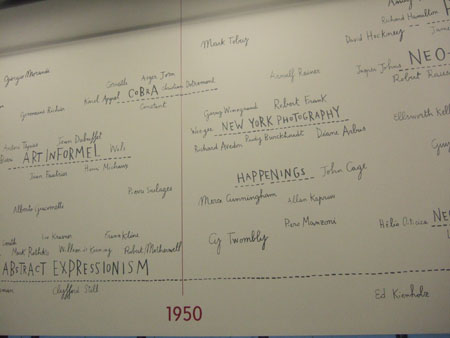 Giorgio Morandi
Germaine Richier
Corneille Asger Jorn
Karel Appel COBRA Christian Dotremont
Constant
Antoni Tàpies Jean Dubuffet
ART INFORMEL Wols
Jean Fautrier Henri Michaux
Pierre Soulages
Alberto Giacometti
Lee Krasner Franz Kline
Mark Rothko Willem de Kooning Robert Motherwell
ABSTRACT EXPRESSIONISM
Clyfford Still
1950
Mark Tobey
Arnulf Rainer
Garry Winogrand Robert Frank
Weegee NEW YORK PHOTOGRAPHY
Richard Avedon Rudy Burckhardt Diane Arbus
HAPPENINGS John Cage
Merce Cunningham Allan Kaprow
Cy Twombly Piero Manzoni
Richard Hamilton
David Hockney
Jasper Johns NEO-
Robert Raus
Ellsworth Kell
Hélio Oiticica NE
Ed Kienholz